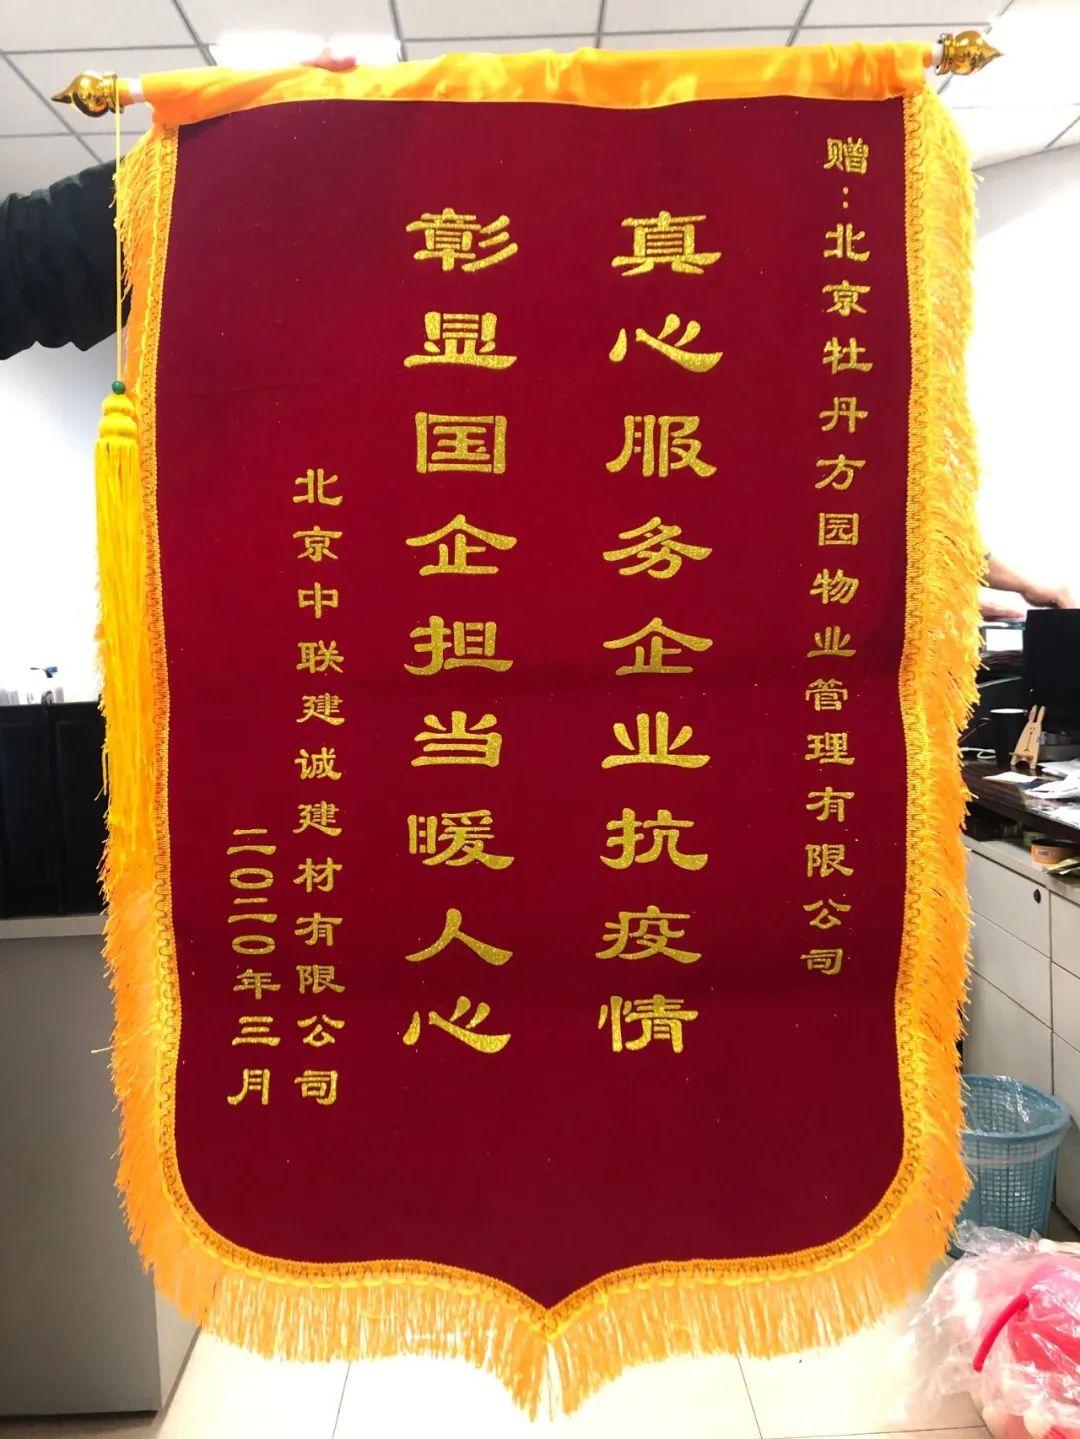 赠：北京牡丹方园物业管理有限公司
真心服务企业抗疫情
彰显国企担当暖人心
北京中联建诚建材有限公司
二〇二〇年三月